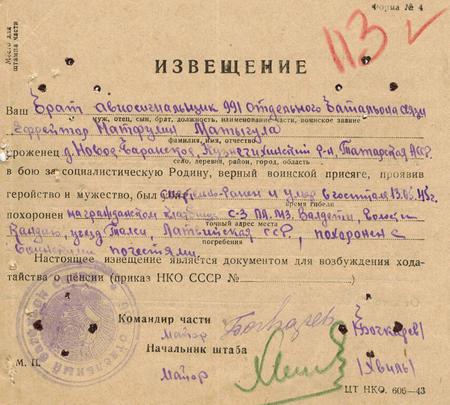 Форма № 4
Место для
штампа части
113
ИЗВЕЩЕНИЕ
Ваш Брат авиосигнальщик 991 отдельного Батальона связи
муж, отец, сын, брат, должность, наименование части, воинское звание
Ефрейтор Натфулин Матыгула
фамилия, имя, отчество
уроженец д. Новое-Баранское, Кузнечихинский р-н, Татарская АССР
село, деревня, район, город, область
в бою за социалистическую Родину, верный воинской присяге, проявив
геройство и мужество, был ранен и умер в госпитале 13.05.45г.
время гибели
похоронен на гражданском кладбище С-З ПА МЗ. Валдети, волость
точный адрес места
Валдгале, уезд Талси, Латвийская ССР, похоронен с
погребения
воинскими почестями.
Настоящее извещение является документом для возбуждения хода-
тайства о пенсии (приказ НКО СССР №
Командир части
Майор Бочкарев /Бочкарев/
Начальник штаба
М. П. Майор /Хвиль/
ЦТ НКО. 606—43